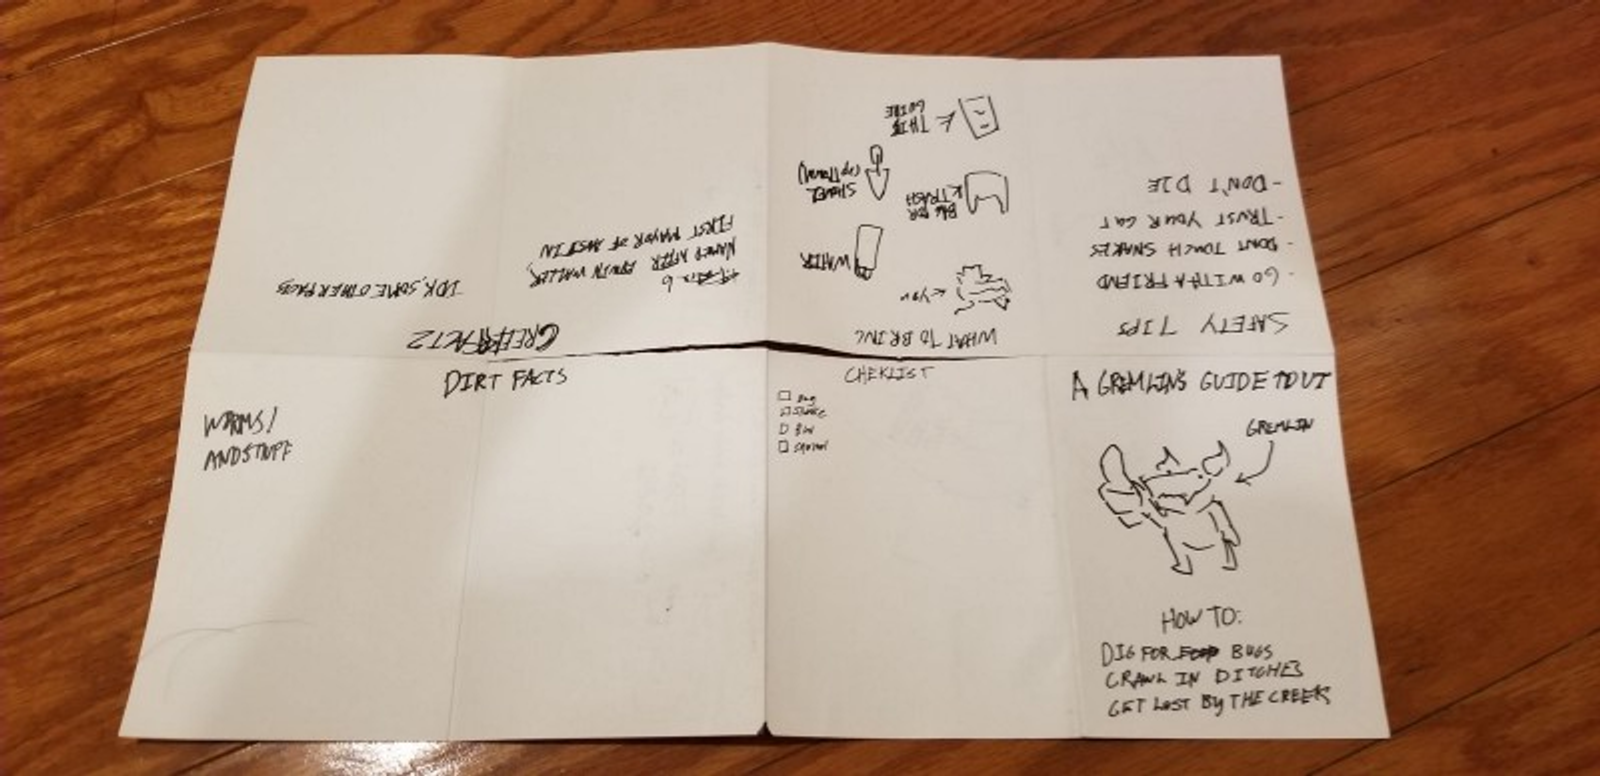 A GREMLINS GUIDE TO UT
GREMLIN
HOW TO:
DIG FOR BUGS
CRAWL IN DITCHES
GET LOST BY THE CREEK
SAFETY TIPS
- GO WITH A FRIEND
- DONT TOUCH SNAKES
- TRUST YOUR GUT
- DON'T DIE
WHAT TO BRING
YOU
WATER
BAG FOR
TRASH
SHOVEL
(OPTIONAL)
THIS
GUIDE
FACTZ
NAMED AFTER EDWIN WALLER,
FIRST MAYOR OF AUSTIN
IDK, SOME OTHER FACTS
DIRT FACTS
WORMS!
AND STUFF
CHEKLIST
Bug